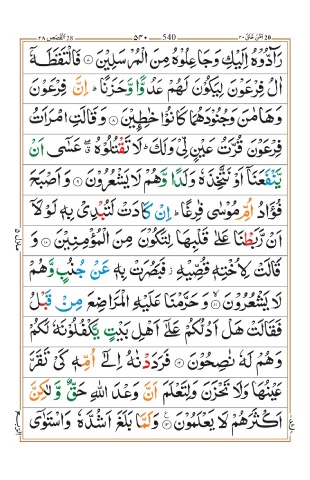 القصص ٢٨ ٥٤٠ 540 امن خلق ٢٠
رَآدُّوْهُ اِلَيْكِ وَجَاعِلُوْهُ مِنَ الْمُرْسَلِيْنَ ۝۷ فَالْتَقَطَهٗۤ
اٰلُ فِرْعَوْنَ لِيَكُوْنَ لَهُمْ عَدُوًّا وَّحَزَنًا ؕ اِنَّ فِرْعَوْنَ
وَهَامٰنَ وَجُنُوْدَهُمَا كَانُوْا خٰطِـِٕيْنَ ۝۸ وَقَالَتِ امْرَاَتُ
فِرْعَوْنَ قُرَّتُ عَيْنٍ لِّيْ وَلَكَ ؕ لَا تَقْتُلُوْهُ ۖۗ عَسٰۤى اَنْ
يَّنْفَعَنَاۤ اَوْ نَتَّخِذَهٗ وَلَدًا وَّهُمْ لَا يَشْعُرُوْنَ ۝۹ وَاَصْبَحَ
فُؤَادُ اُمِّ مُوْسٰى فٰرِغًا ؕ اِنْ كَادَتْ لَتُبْدِيْ بِهٖ لَوْلَاۤ
اَنْ رَّبَطْنَا عَلٰى قَلْبِهَا لِتَكُوْنَ مِنَ الْمُؤْمِنِيْنَ ۝۱۰ وَ
قَالَتْ لِاُخْتِهٖ قُصِّيْهِ ؗ فَبَصُرَتْ بِهٖ عَنْ جُنُبٍ وَّهُمْ
لَا يَشْعُرُوْنَ ۝۱۱ وَحَرَّمْنَا عَلَيْهِ الْمَرَاضِعَ مِنْ قَبْلُ
فَقَالَتْ هَلْ اَدُلُّكُمْ عَلٰۤى اَهْلِ بَيْتٍ يَّكْفُلُوْنَهٗ لَكُمْ
وَهُمْ لَهٗ نٰصِحُوْنَ ۝۱۲ فَرَدَدْنٰهُ اِلٰۤى اُمِّهٖ كَيْ تَقَرَّ
عَيْنُهَا وَلَا تَحْزَنَ وَلِتَعْلَمَ اَنَّ وَعْدَ اللّٰهِ حَقٌّ وَّلٰكِنَّ
اَكْثَرَهُمْ لَا يَعْلَمُوْنَ ۝۱۳ وَلَمَّا بَلَغَ اَشُدَّهٗ وَاسْتَوٰۤى